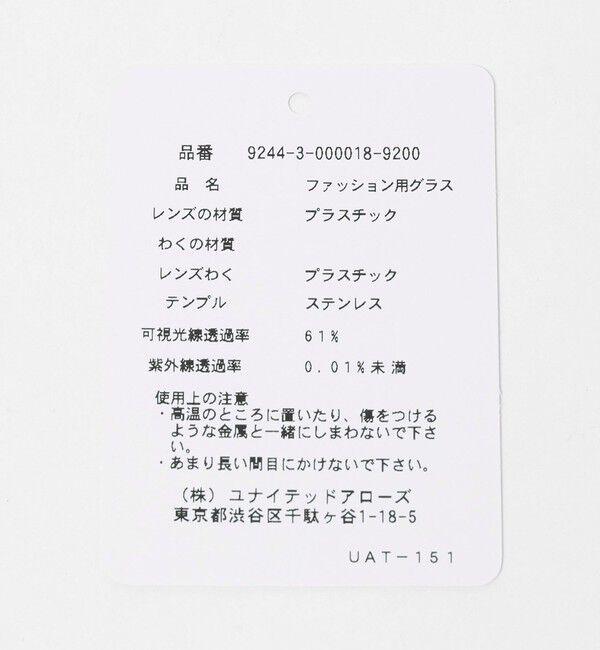 品番 9244-3-000018-9200
品 名 ファッション用グラス
レンズの材質 プラスチック
わくの材質
レンズわく プラスチック
テンプル ステンレス
可視光線透過率 61%
紫外線透過率 0.01%未満
使用上の注意
・高温のところに置いたり、傷をつける
ような金属と一緒にしまわないで下さ
い。
・あまり長い間目にかけないで下さい。
（株）ユナイテッドアローズ
東京都渋谷区千駄ヶ谷1-18-5
UAT-151